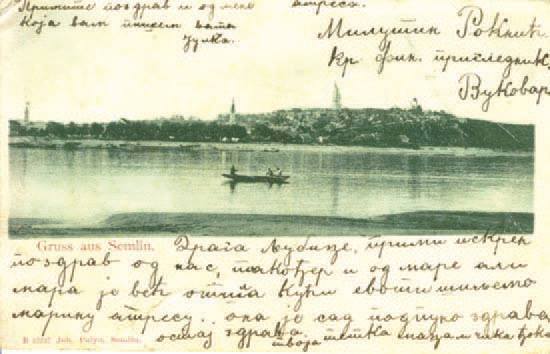 Примите поздрав и од мене
која вам пишем ваша
Јулка.
адреса.
Милутин Рокнић
кр. фин. прегледник,
Вуковар
Gruss aus Semlin.
Драга Љубице, прими искрен
поздрав од нас, такођер и од маре али
мара је већ отишла кући ево ти шиљемо
марину адресу.. она је сад подпуно здрава
остај здрава. твоја тетка
Joh. Pulyo, Semlin.